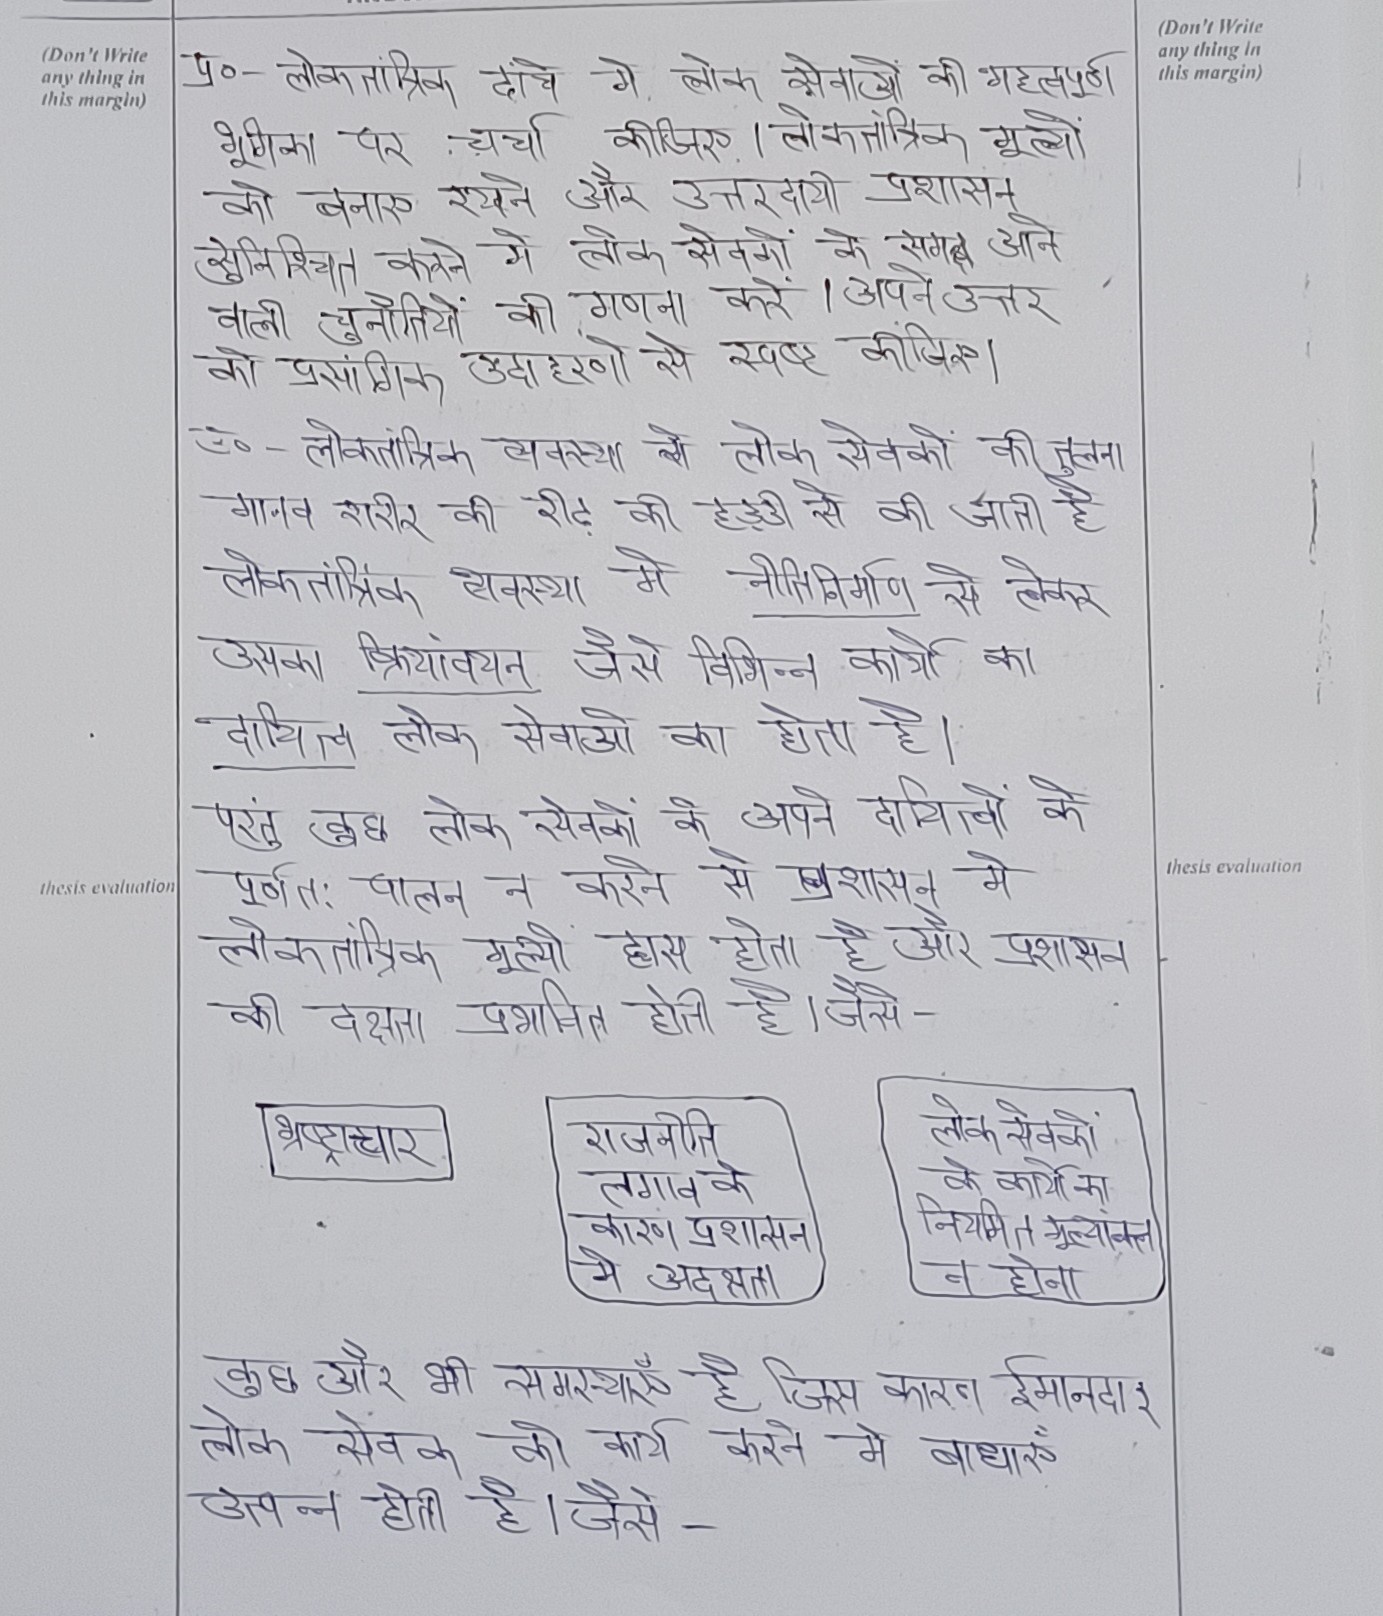 (Don't Write
any thing in
this margin)
(Don't Write
any thing in
this margin)
प्र०- लोकतांत्रिक ढांचे मे लोक सेवाओं की महत्वपूर्ण
भूमिका पर चर्चा कीजिए । लोकतांत्रिक मूल्यों
को बनाए रखने और उत्तरदायी प्रशासन
सुनिश्चित करने मे लोक सेवकों के समक्ष आने
वाली चुनौतियों की गणना करें । अपने उत्तर
को प्रसांगिक उदाहरणो से स्पष्ट कीजिए।
उ०- लोकतांत्रिक व्यवस्था मे लोक सेवकों की तुलना
मानव शरीर की रीढ़ की हड्डी से की जाती है
लोकतांत्रिक व्यवस्था मे नीतिनिर्माण से लेकर
उसका क्रियांवयन जैसे विभिन्न कार्यो का
दायित्व लोक सेवाओ का होता है।
परंतु कुछ लोक सेवकों के अपने दायित्वों के
पूर्णत: पालन न करने से प्रशासन मे
लोकतांत्रिक मूल्यों ह्रास होता है और प्रशासन
की दक्षता प्रभावित होती है । जैसे -
thesis evaluation
thesis evaluation
भ्रष्ट्राचार
राजनीति
लगाव के
कारण प्रशासन
मे अदक्षता
लोक सेवकों
के कार्यो का
नियमित मूल्यांकन
न होना
कुछ और भी समस्याएँ है जिस कारण ईमानदार
लोक सेवक को कार्य करने मे बाधाएँ
उत्पन्न होती है । जैसे -